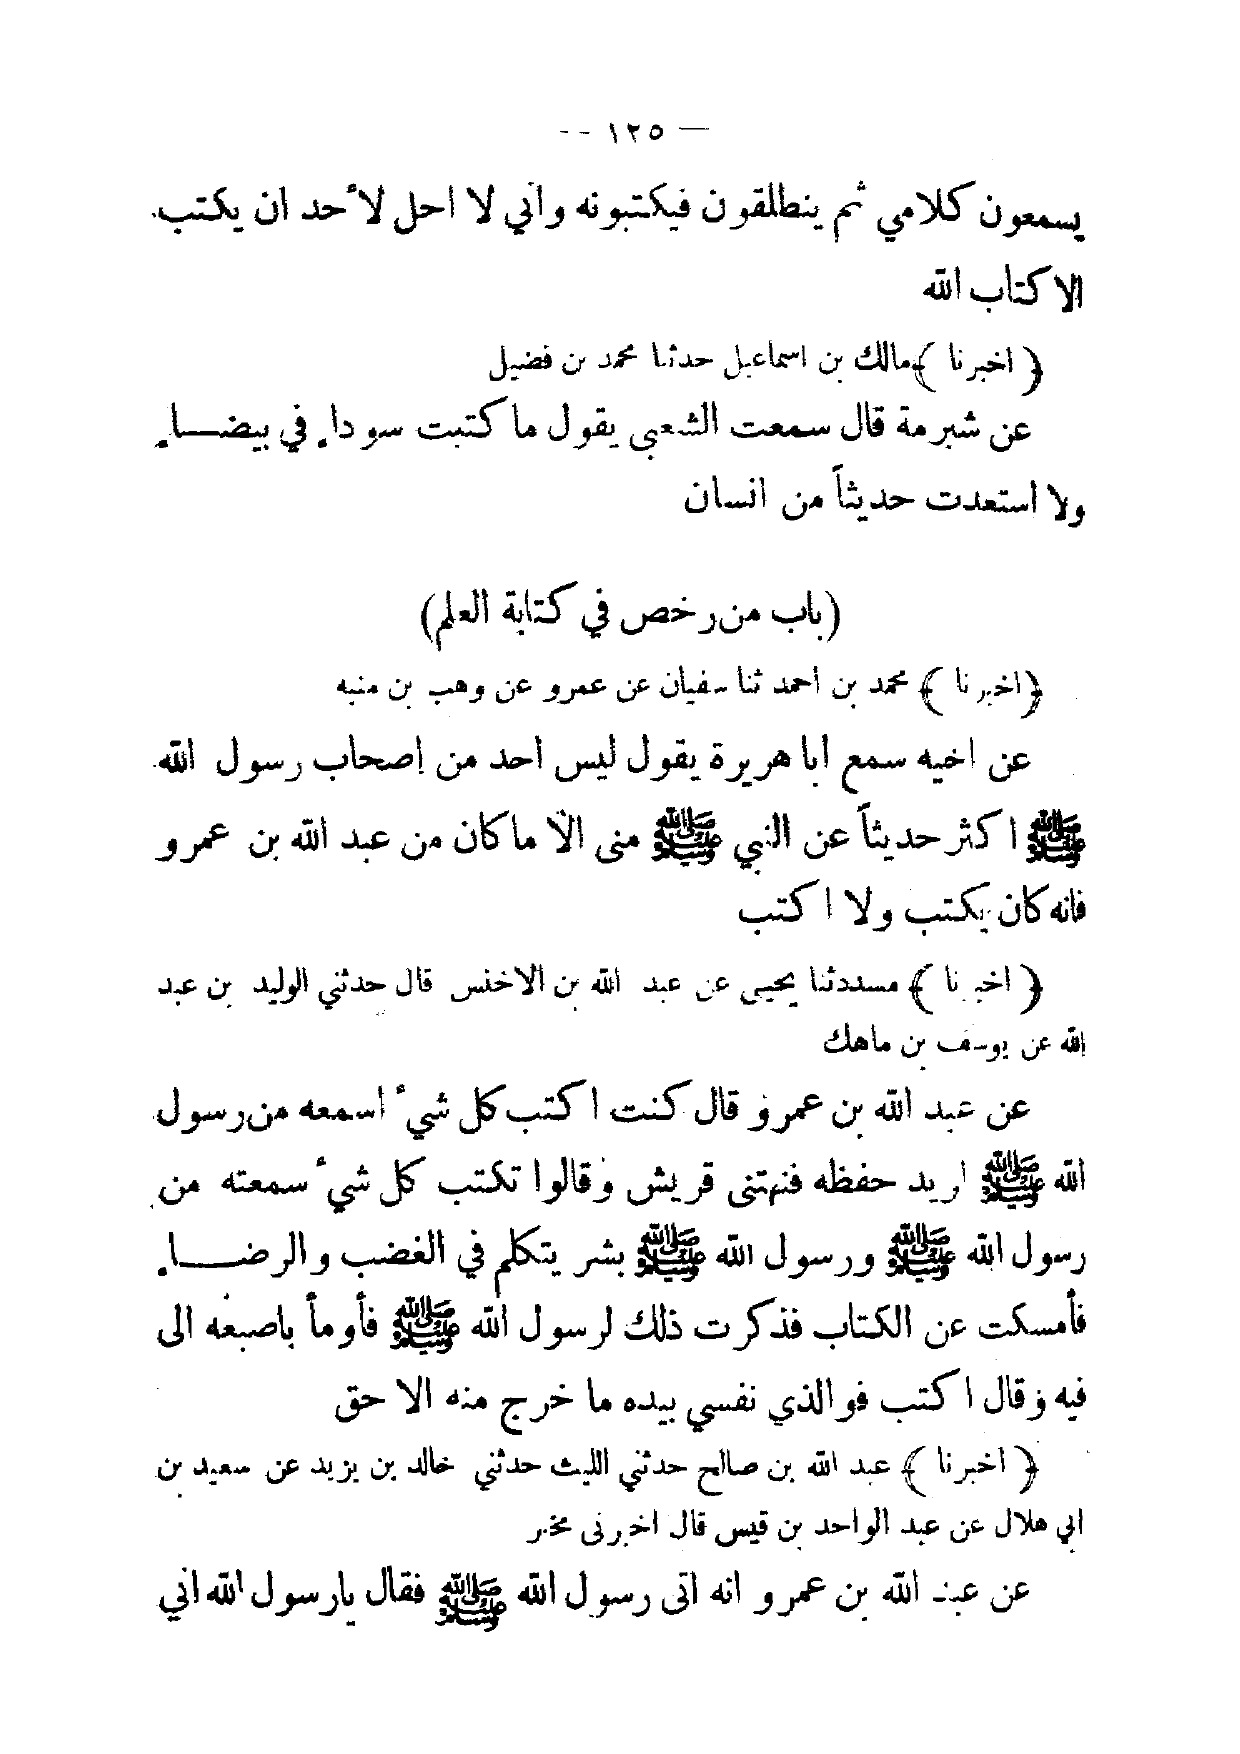 — ١٢٥ --
يسمعون كلامي ثم ينطلقون فيكتبونه واني لا احل لأحد ان يكتب
الا كتاب الله
﴿ اخبرنا ﴾ مالك بن اسماعيل حدثنا محمد بن فضيل
عن شبرمة قال سمعت الشعبى يقول ما كتبت سوداء في بيضاء
ولا استعدت حديثاً من انسان
(باب من رخص في كتابة العلم)
﴿اخبرنا ﴾ محمد بن احمد ثنا سفيان عن عمرو عن وهب بن منبه
عن اخيه سمع ابا هريرة يقول ليس احد من إصحاب رسول الله
ﷺ اكثر حديثاً عن النبي ﷺ منى الاّ ما كان من عبد الله بن عمرو
فانه كان يكتب ولا اكتب
﴿ اخبرنا ﴾ مسددثنا يحيى عن عبد الله بن الاخنس قال حدثني الوليد بن عبد
الله عن يوسف بن ماهك
عن عبد الله بن عمرو قال كنت اكتب كل شيء اسمعه من رسول
الله ﷺ اريد حفظه فنهتنى قريش وقالوا تكتب كل شيء سمعته من
رسول الله ﷺ ورسول الله ﷺ بشر يتكلم في الغضب والرضاء
فأمسكت عن الكتاب فذكرت ذلك لرسول الله ﷺ فأومأ باصبعه الى
فيه وقال اكتب فوالذي نفسي بيده ما خرج منه الا حق
﴿ اخبرنا ﴾ عبد الله بن صالح حدثني الليث حدثني خالد بن يزيد عن سعيد بن
ابي هلال عن عبد الواحد بن قيس قال اخبرنى مخبر
عن عبد الله بن عمرو انه اتى رسول الله ﷺ فقال يارسول الله اني